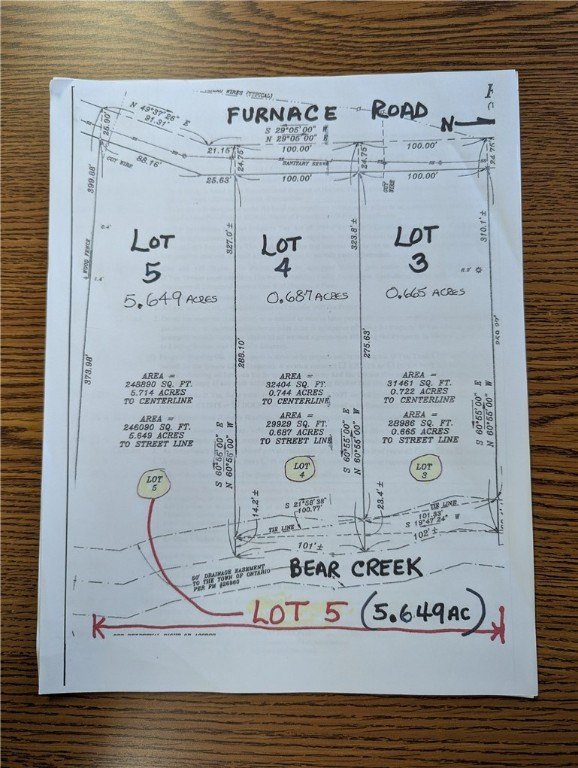 FURNACE ROAD
N
N 49°37'26" E
91.31'
25.90'
S 29°05'00" W
N 29°05'00" E
100.00'
100.00'
21.15'
24.75'
24.75'
24.75'
88.16'
SANITARY SEWER
GUY WIRE
GUY WIRE
25.63'
100.00'
100.00'
399.88'
327.0'±
323.8'±
310.1'±
WOOD FENCE
LOT
5
5.649 ACRES
LOT
4
0.687 ACRES
LOT
3
0.665 ACRES
373.98'
288.10'
275.63'
AREA =
248890 SQ. FT.
5.714 ACRES
TO CENTERLINE
AREA =
246090 SQ. FT.
5.649 ACRES
TO STREET LINE
AREA =
32404 SQ. FT.
0.744 ACRES
TO CENTERLINE
AREA =
29929 SQ. FT.
0.687 ACRES
TO STREET LINE
AREA =
31461 SQ. FT.
0.722 ACRES
TO CENTERLINE
AREA =
28986 SQ. FT.
0.665 ACRES
TO STREET LINE
S 60°55'00" E
N 60°55'00" W
S 60°55'00" E
N 60°55'00" W
S 60°55'00" E
N 60°55'00" W
LOT
5
LOT
4
LOT
3
14.2'±
S 21°58'38"
100.77'
TIE LINE
23.4'±
TIE LINE
101.83'
S 19°47'24" W
101'±
102'±
BEAR CREEK
60' DRAINAGE EASEMENT
TO THE TOWN OF ONTARIO
PER FM #26860
LOT 5 (5.649 AC)